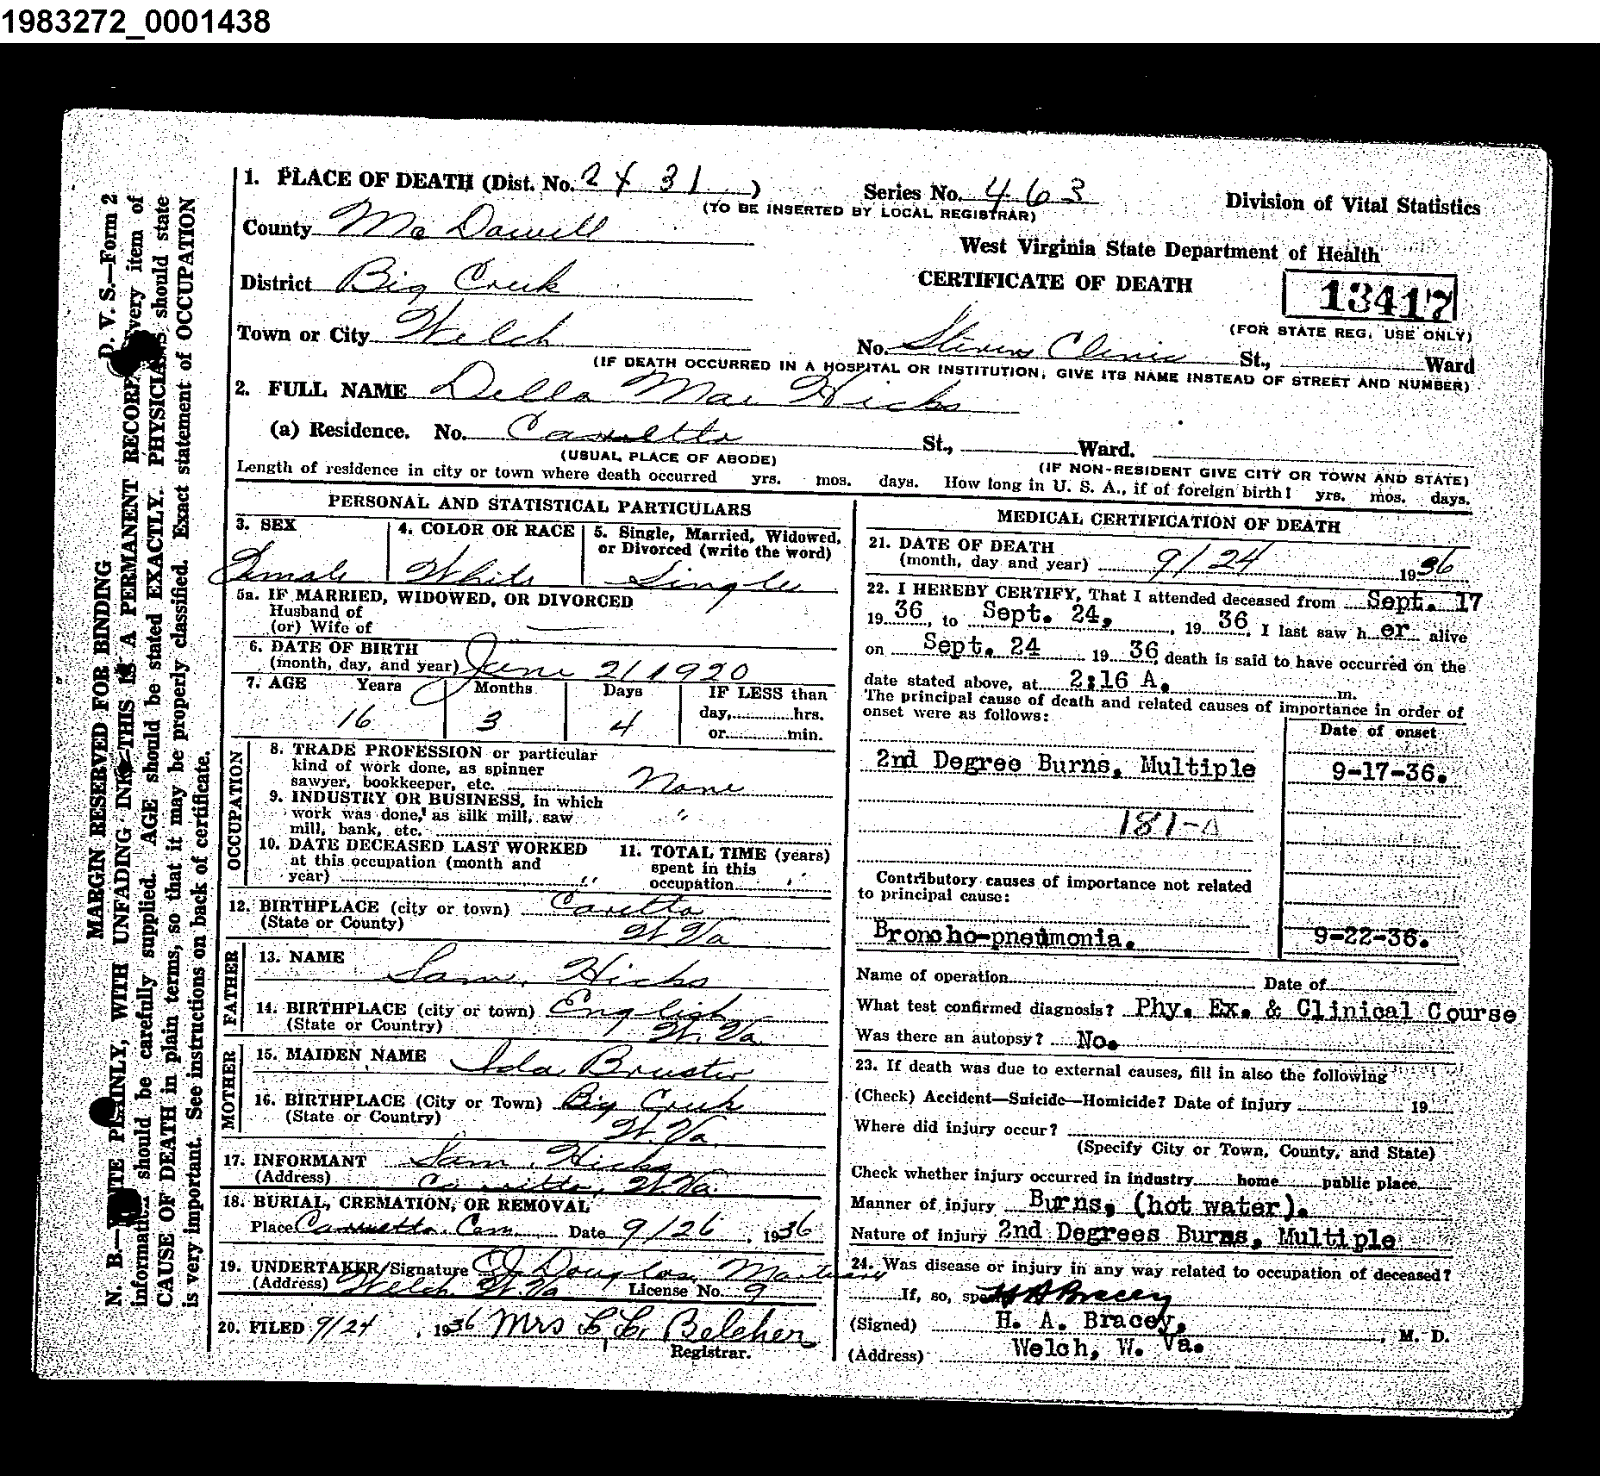 1983272_0001438
D. V. S.—Form 2
MARGIN RESERVED FOR BINDING
N. B.— PLAINLY, WITH UNFADING INK—THIS IS A PERMANENT RECORD. Every item of
information should be carefully supplied. AGE should be stated EXACTLY. PHYSICIANS should state
CAUSE OF DEATH in plain terms, so that it may be properly classified. Exact statement of OCCUPATION
is very important. See instructions on back of certificate.
1. PLACE OF DEATH (Dist. No. 2431) Series No. 463
(TO BE INSERTED BY LOCAL REGISTRAR)
Division of Vital Statistics
County McDowell
West Virginia State Department of Health
District Big Creek
CERTIFICATE OF DEATH
13417
(FOR STATE REG. USE ONLY)
Town or City Welch No. Stevens Clinic St., Ward
(IF DEATH OCCURRED IN A HOSPITAL OR INSTITUTION, GIVE ITS NAME INSTEAD OF STREET AND NUMBER)
2. FULL NAME Della Mae Hicks
(a) Residence. No. Carretta St., Ward.
(USUAL PLACE OF ABODE) (IF NON-RESIDENT GIVE CITY OR TOWN AND STATE)
Length of residence in city or town where death occurred yrs. mos. days. How long in U. S. A., if of foreign birth? yrs. mos. days.
PERSONAL AND STATISTICAL PARTICULARS
3. SEX 4. COLOR OR RACE 5. Single, Married, Widowed,
or Divorced (write the word)
Female White Single
5a. IF MARRIED, WIDOWED, OR DIVORCED
Husband of
(or) Wife of —
6. DATE OF BIRTH
(month, day, and year) June 21 1920
7. AGE Years Months Days IF LESS than
day, hrs.
16 3 4 or min.
OCCUPATION
8. TRADE PROFESSION or particular
kind of work done, as spinner
sawyer, bookkeeper, etc. None
9. INDUSTRY OR BUSINESS, in which
work was done, as silk mill, saw
mill, bank, etc. "
10. DATE DECEASED LAST WORKED
at this occupation (month and
year) "
11. TOTAL TIME (years)
spent in this
occupation "
12. BIRTHPLACE (city or town) Caretta
(State or County) W. Va
FATHER
13. NAME Sam Hicks
14. BIRTHPLACE (city or town) English
(State or Country) W. Va.
MOTHER
15. MAIDEN NAME Ida Bruster
16. BIRTHPLACE (City or Town) Big Creek
(State or Country) W. Va.
17. INFORMANT Sam Hicks
(Address) Carretta, W. Va.
18. BURIAL, CREMATION, OR REMOVAL
Place Carretta Cem. Date 9/26, 1936
19. UNDERTAKER/Signature Douglas Mortuary
(Address) Welch W. Va License No. 9
20. FILED 9/24, 1936 Mrs L. L. Belcher
Registrar.
MEDICAL CERTIFICATION OF DEATH
21. DATE OF DEATH
(month, day and year) 9/24 1936
22. I HEREBY CERTIFY, That I attended deceased from Sept. 17
1936, to Sept. 24, 1936. I last saw her alive
on Sept. 24 1936, death is said to have occurred on the
date stated above, at 2:16 A. m.
The principal cause of death and related causes of importance in order of
onset were as follows:
Date of onset
2nd Degree Burns, Multiple 9-17-36.
181-A
Contributory causes of importance not related
to principal cause:
Broncho-pneumonia. 9-22-36.
Name of operation Date of
What test confirmed diagnosis? Phy. Ex. & Clinical Course
Was there an autopsy? No.
23. If death was due to external causes, fill in also the following
(Check) Accident—Suicide—Homicide? Date of injury 19
Where did injury occur?
(Specify City or Town, County, and State)
Check whether injury occurred in industry home public place
Manner of injury Burns, (hot water).
Nature of injury 2nd Degrees Burns, Multiple
24. Was disease or injury in any way related to occupation of deceased?
If, so, specify H A Bracey
(Signed) H. A. Bracey, M. D.
(Address) Welch, W. Va.